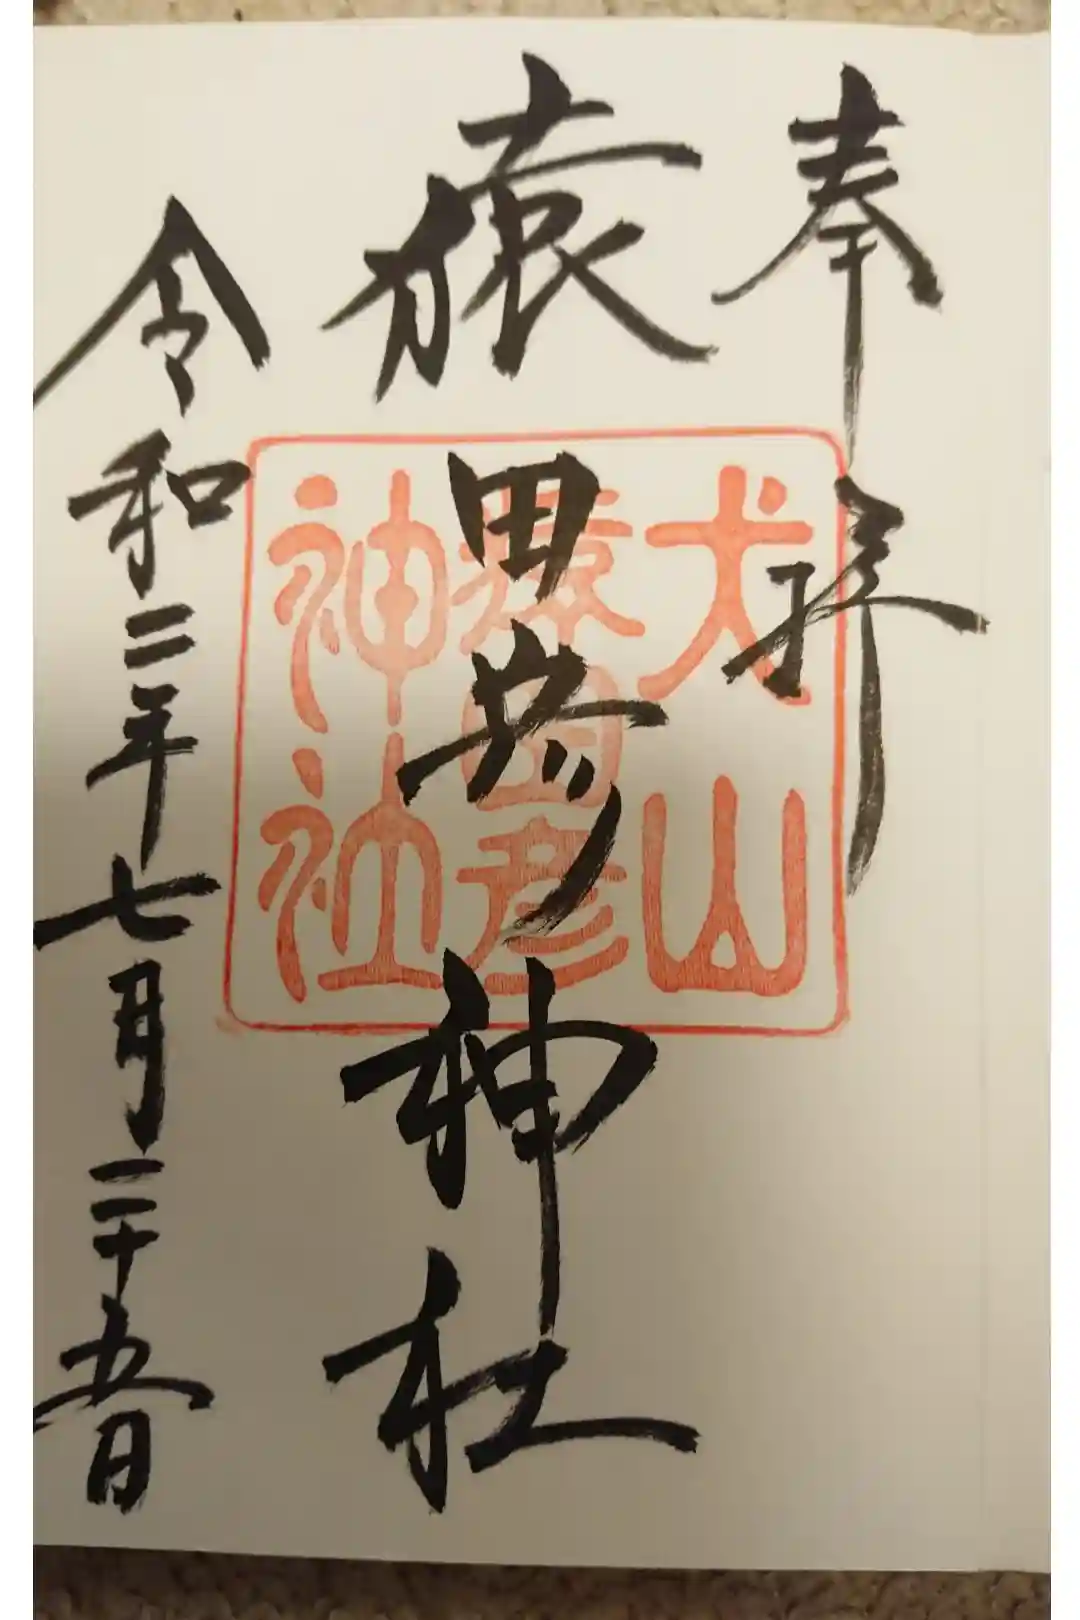 奉拝
犬山
猿田彦
神社
猿田彦神社
令和二年七月二十五日